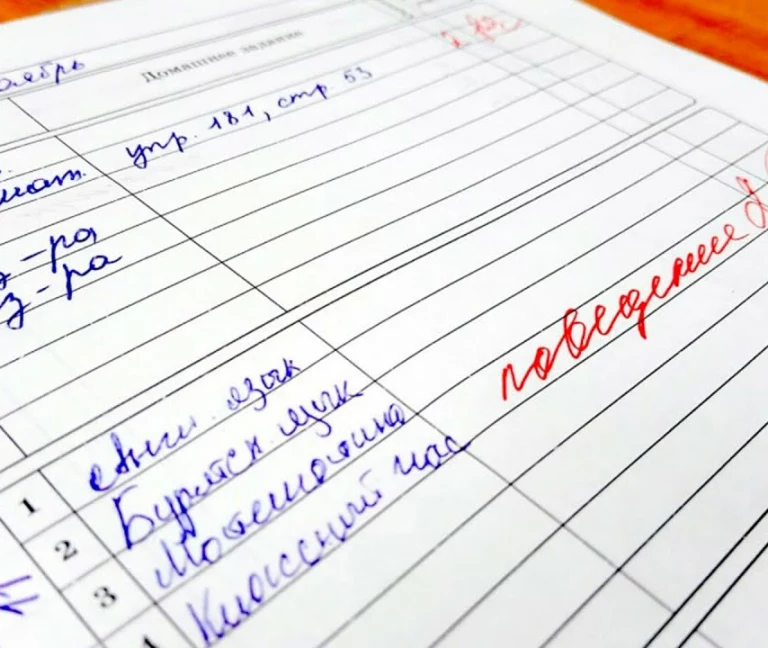 Домашнее задание
упр. 181, стр. 53
з-ра
поведение 2
1 Англ. язык
2 Бурятск. язык
3 Математика
Классный час